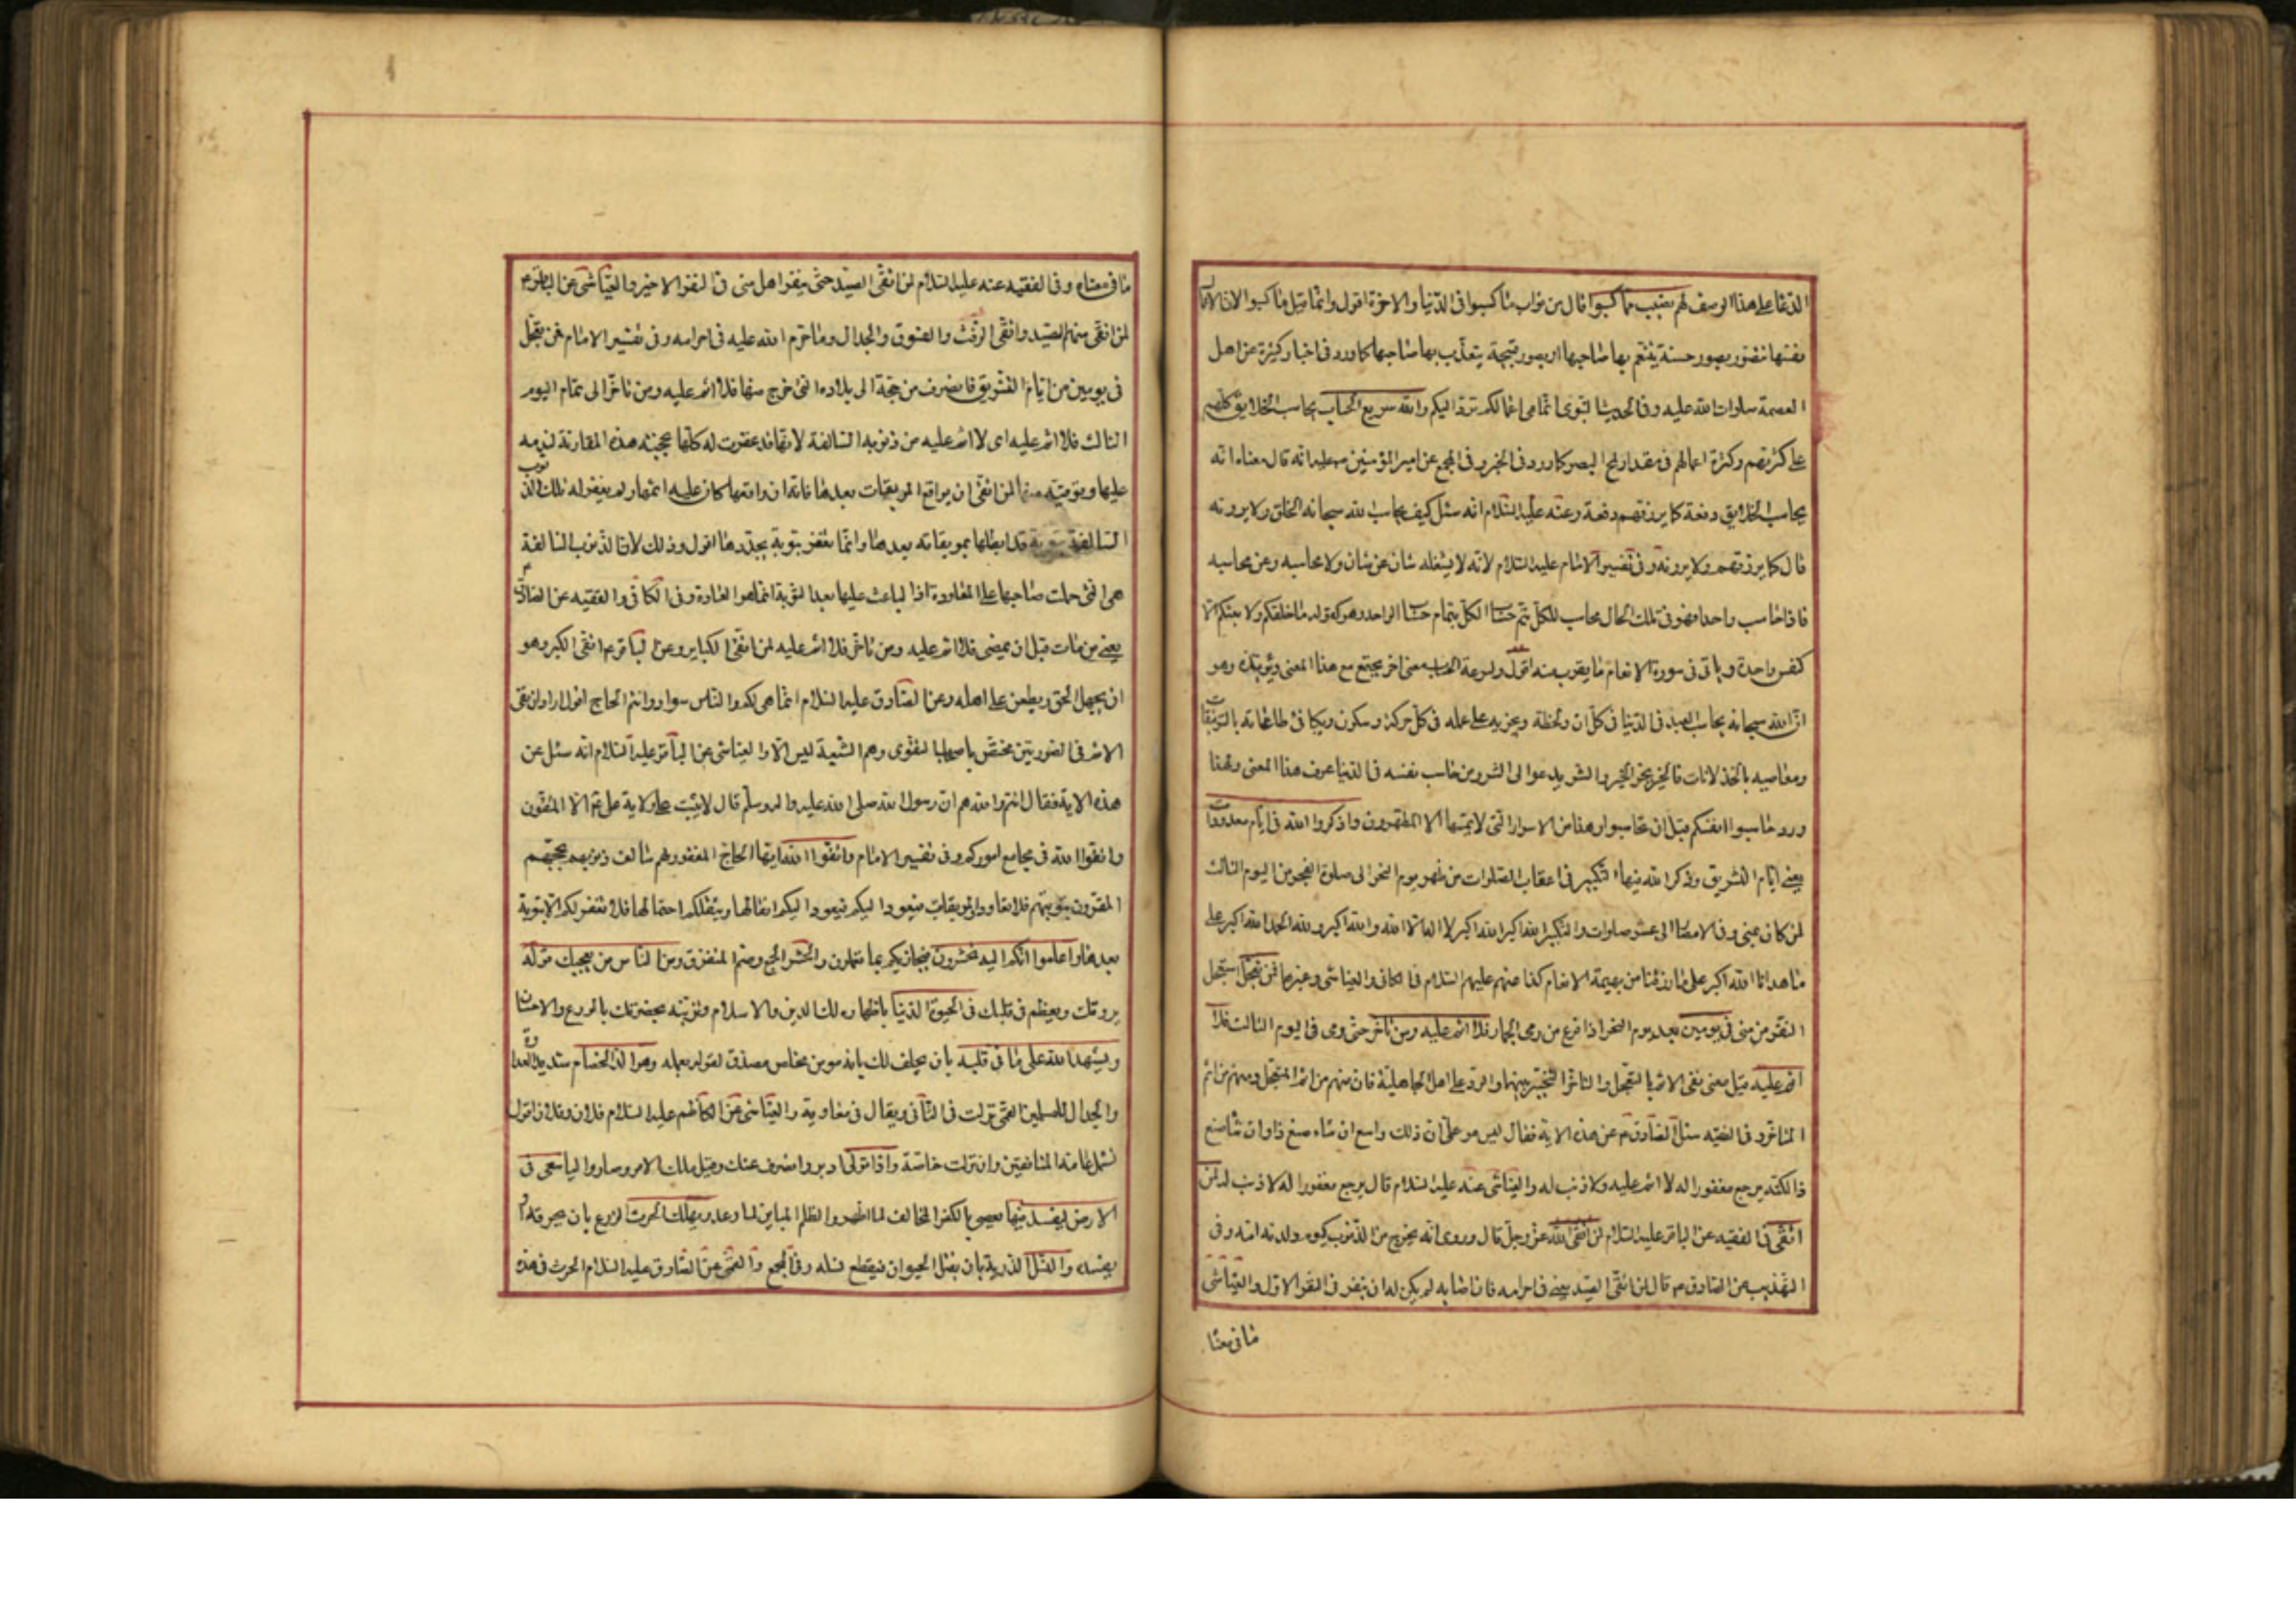 الدعا على هذا الوصف لهم نصيب مما كسبوا قال من ثواب ما كسبوا فى الدنيا والاخرة اقول وانما قيل مما كسبوا لان الاعمال
بعينها تتصور بصور حسنة يتنعم بها صاحبها او بصور قبيحة يتعذب بها صاحبها كما ورد فى اخبار كثيرة عن اهل
العصمة صلوات الله عليه وفى الحديث النبوى انما هى اعمالكم ترد اليكم والله سريع الحساب يحاسب الخلايق كلهم
على كثرتهم وكثرة اعمالهم فى مقدار لمح البصر كما ورد فى الخبر وفى المجمع عن امير المؤمنين عليه انه قال معناه انه
يحاسب الخلايق دفعة كما يرزقهم دفعة وعنه عليه السلام انه سئل كيف يحاسب الله سبحانه الخلق ولا يرونه
قال كما يرزقهم ولا يرونه وفى تفسير الامام عليه السلام لانه لا يشغله شان عن شان ولا محاسبه وعن محاسبه
فاذا حاسب واحدا فهو فى تلك الحال محاسب للكل يتم حساب الكل بتمام حساب الواحد وهو كقوله ما خلقكم ولا بعثكم الا
كنفس واحدة وياتى فى سورة الانعام ما يقرب منه اقول ولسرعة الحساب معنى اخر يجتمع مع هذا المعنى ويؤيده وهو
ان الله سبحانه يحاسب العبد فى الدنيا فى كل ان ولحظة ويجزيه على عمله فى كل حركة وسكون ويكافى طاعاته بالتوفيقات
ومعاصيه بالخذلانات فالخير يجر الخير والشر يدعوا الى الشر ومن حاسب نفسه فى الدنيا عرف هذا المعنى ولهذا
ورد حاسبوا انفسكم قبل ان تحاسبوا وهذا من الاسرار التى لا يمسها الا المطهرون واذكروا الله فى ايام معدودات
يعنى ايام التشريق وذكر الله فيها التكبير فى اعقاب الصلوات من ظهر يوم النحر الى صلوة الفجر من اليوم الثالث
لمن كان بمنى وفى الامصار الى عشر صلوات والتكبير الله اكبر الله اكبر لا اله الا الله والله اكبر ولله الحمد الله اكبر على
ما هدانا الله اكبر على ما رزقنا من بهيمة الانعام كذا عنهم عليهم السلام فى الكافى والعياشى وغيرها فمن تعجل استعجل
النفر من منى فى يومين بعد يوم النحر اذا فرغ من رمى الجمار فلا اثم عليه ومن تاخر حتى رمى فى اليوم الثالث فلا
اثم عليه قيل معنى نفى الاثم بالتعجل والتاخر التخيير بينهما والرد على اهل الجاهلية فان منهم من اثم المتعجل ومنهم من اثم
المتاخر وفى الفقيه سئل الصادق ع عن هذه الاية فقال ليس هو على ان ذلك واسع ان شاء صنع ذا وان شا صنع
ذا لكنه يرجع مغفورا له لا اثم عليه ولا ذنب له والعياشى عنه عليه السلام قال يرجع مغفورا له لا ذنب له لمن
اتقى فى الفقيه عن الباقر عليه السلام لمن اتقى الله عز وجل قال وروى انه يخرج من الذنوب كيوم ولدته امه وفى
التهذيب عن الصادق ع قال لمن اتقى الصيد يعنى فى احرامه فان اصابه لم يكن له ان ينفر فى النفر الاول والعياشى
ما فى معنا
ما فى معناه وفى الفقيه عنه عليه السلام لمن اتقى الصيد حتى ينفر اهل منى فى النفر الاخير والعياشى عن الباقر ع
لمن اتقى منهم الصيد واتقى الرفث والفسوق والجدال وما حرم الله عليه فى احرامه وفى تفسير الامام فمن تعجل
فى يومين من ايام التشريق فانصرف من حجه الى بلاده التى خرج منها فلا اثم عليه ومن تاخر الى تمام اليوم
الثالث فلا اثم عليه اى لا اثم عليه من ذنوبه السالفة لانها قد غفرت له كلها بحجته هذه المقارنة لندمه
عليها وتوقيه منها لمن اتقى ان يواقع الموبقات بعدها فانه ان واقعها كان عليه اثمها ولم يغفر له تلك الذنوب
السالفة بتوبة قد ابطلها بموبقاته بعدها وانما تغفر بتوبة يجددها اقول وذلك لان الذنوب السالفة
هى التى حملت صاحبها على المعاودة اذ الباعث عليها بعد التوبة انما هو العادة وفى الكافى والفقيه عن الصادق ع
يعنى من مات قبل ان يمضى فلا اثم عليه ومن تاخر فلا اثم عليه لمن اتقى الكباير وعن الباقر ع اتقى الكبر وهو
ان يجهل الحق ويطعن على اهله وعن الصادق عليه السلام انما هى لكم والناس سواد وانتم الحاج اقول اراد ان نفى
الاثم فى الصورتين مختص باصحاب التقوى وهم الشيعة ليس الا والعياشى عن الباقر عليه السلام انه سئل عن
هذه الاية فقال انتم والله هم ان رسول الله صلى الله عليه واله وسلم قال لا يثبت على ولاية على ع الا المتقون
واتقوا الله فى مجامع اموركم وفى تفسير الامام واتقوا الله ايها الحاج المغفور لهم سالف ذنوبهم بحجتهم
المقرون بتوبتهم فلا تعاودوا الموبقات فيعود اليكم اثقالها ويثقلكم احتمالها فلا تغفر لكم الا بتوبة
بعدها واعلموا انكم اليه تحشرون فيجازيكم بما تعملون والحشر الجمع وضم المتفرق ومن الناس من يعجبك قوله
يروقك ويعظم فى قلبك فى الحيوة الدنيا باظهاره لك الدين والاسلام وتزينه بحضرتك بالورع والاحسان
ويشهد الله على ما فى قلبه بان يحلف لك بانه مومن مخلص مصدق لقوله بعمله وهو الد الخصام شديد العداوة
والجدال للمسلمين القمى نزلت فى الثانى ويقال فى معاوية والعياشى عن الكاظم عليه السلام فلان وفلان اقول
تشمل عامة المنافقين وان نزلت خاصة واذا تولى ادبر وانصرف عنك وقيل ملك الامر وصار واليا سعى فى
الارض ليفسد فيها يعصى بالكفر المخالف لما اظهر والظلم المباين لما وعد ويهلك الحرث الزرع بان يحرقه او
يفسده والنسل الذرية بان يقتل الحيوان فيقطع نسله وفى المجمع والقمى عن الصادق عليه السلام الحرث فى هذه